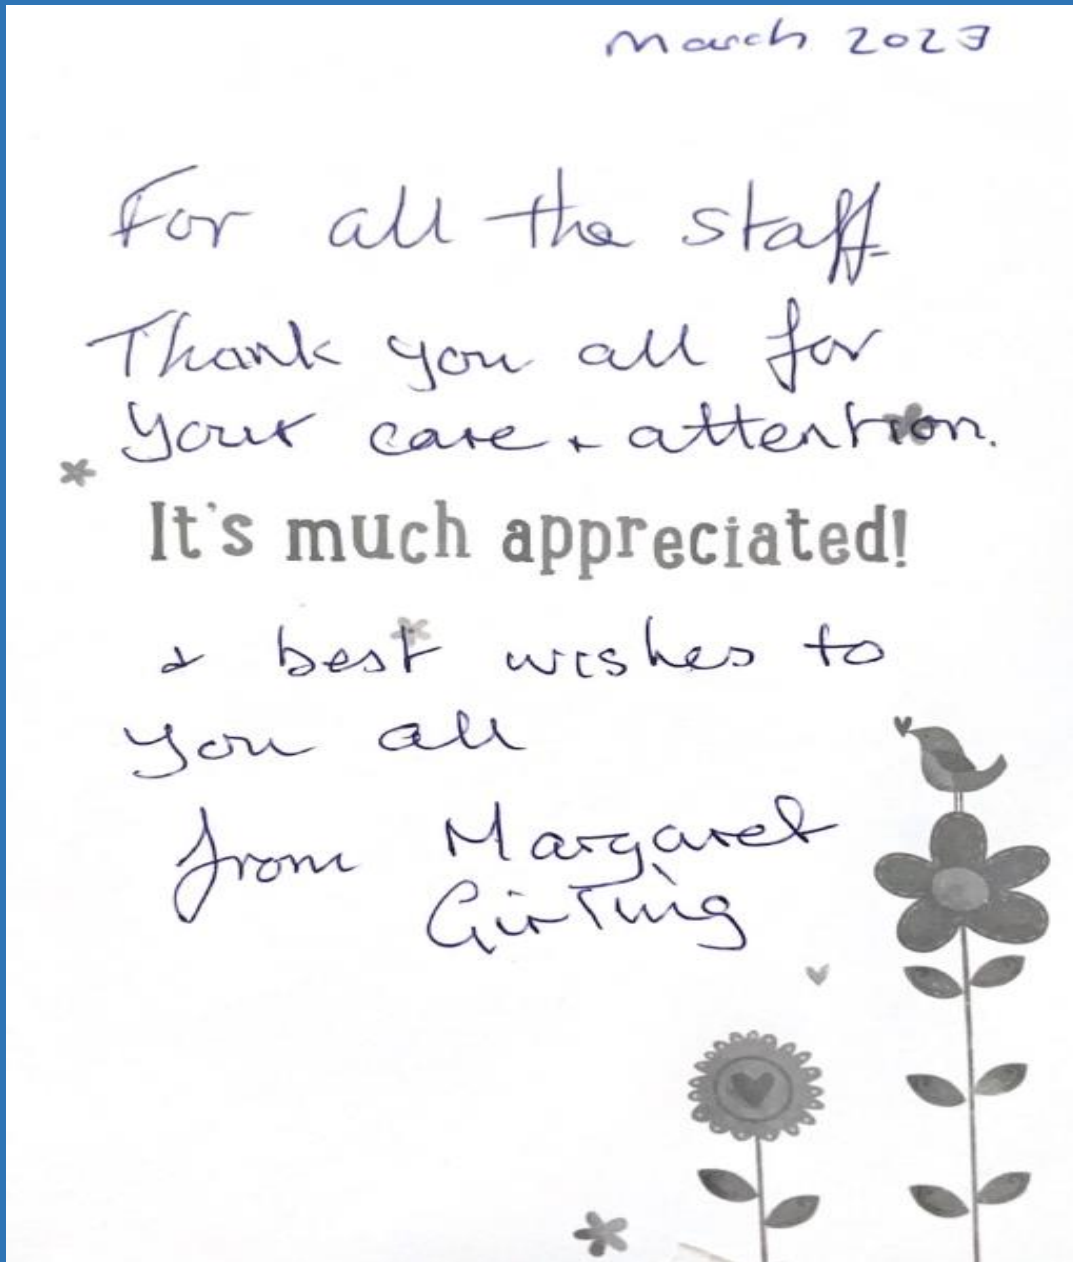 March 2023
For all the staff
Thank you all for
your care + attention.
It's much appreciated!
+ best wishes to
you all
from Margaret